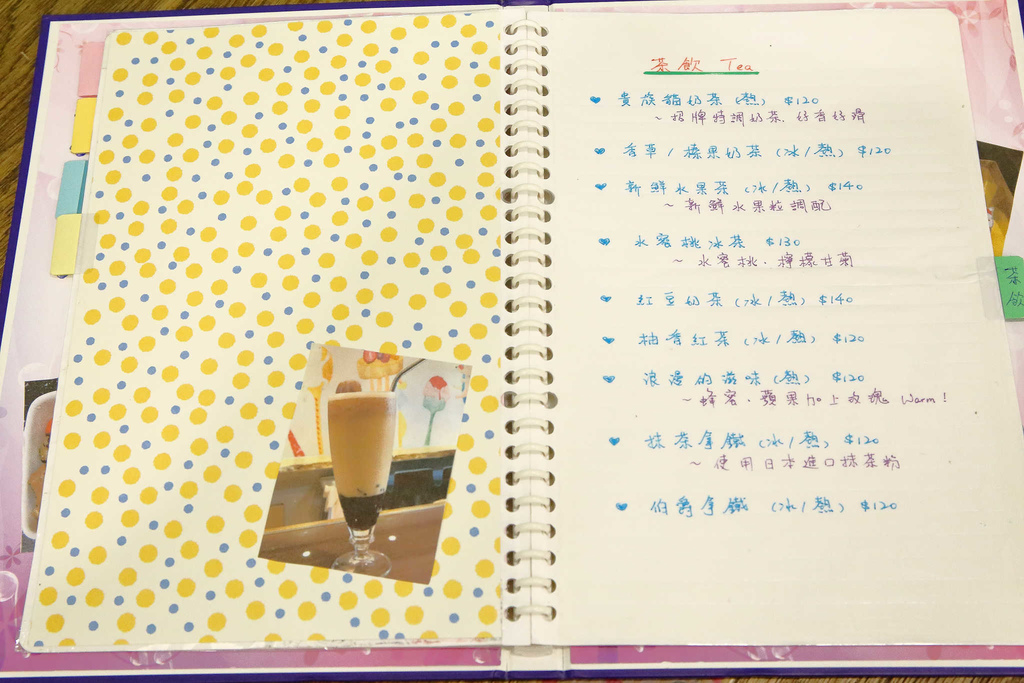 茶飲 Tea
♥ 貴族貓奶茶(熱) $120
~招牌特調奶茶.好香好滑
♥ 香草/榛果奶茶(冰/熱) $120
♥ 新鮮水果茶(冰/熱) $140
~新鮮水果粒調配
♥ 水蜜桃冰茶 $130
~水蜜桃.檸檬甘菊
♥ 紅豆奶茶(冰/熱) $140
♥ 柚香紅茶(冰/熱) $120
♥ 浪漫的滋味(熱) $120
~蜂蜜.蘋果加上玫瑰 Warm!
♥ 抹茶拿鐵(冰/熱) $120
~使用日本進口抹茶粉
♥ 伯爵拿鐵 (冰/熱) $120
茶飲